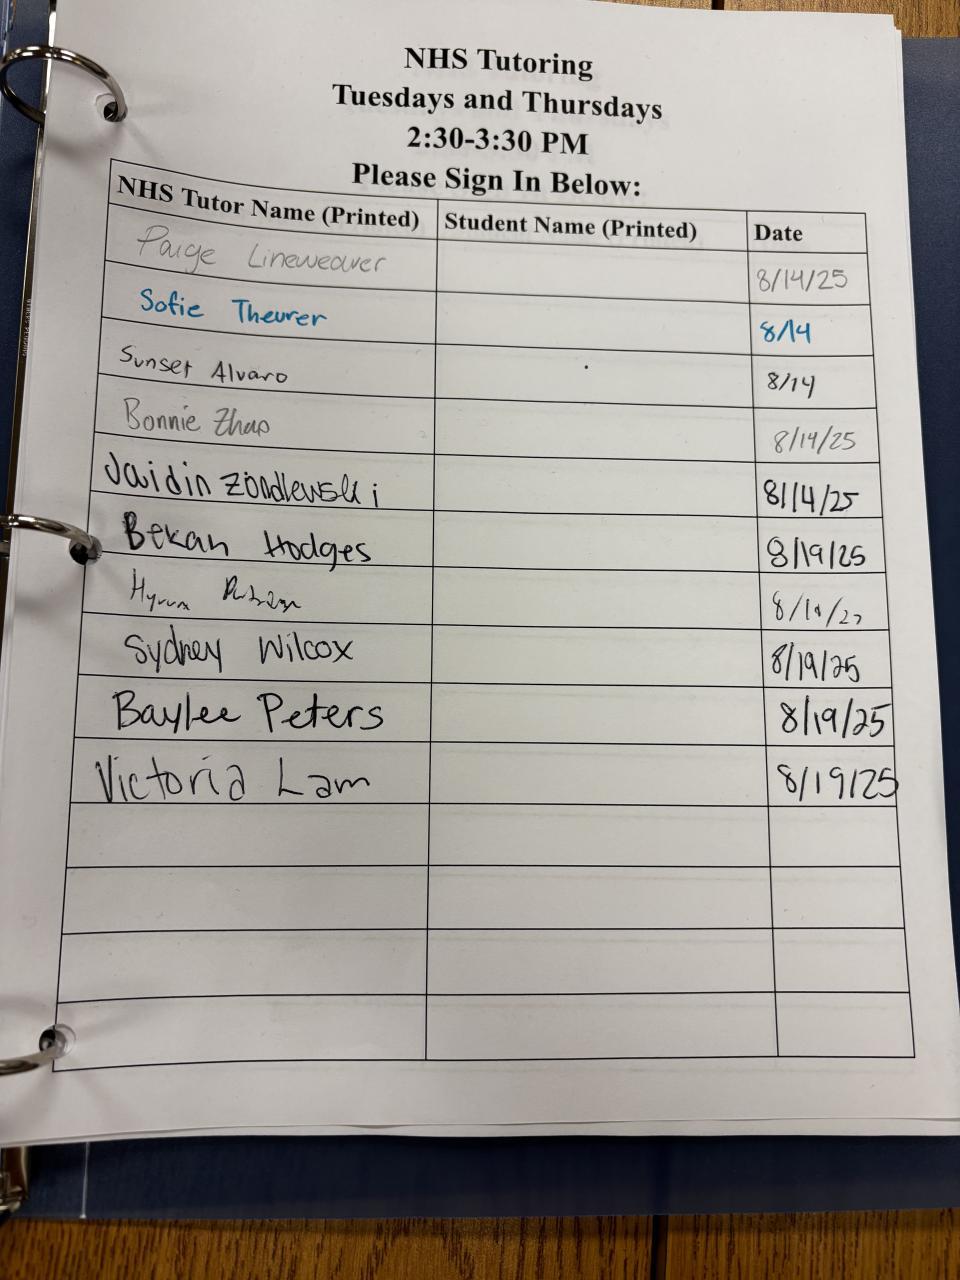 NHS Tutoring
Tuesdays and Thursdays
2:30-3:30 PM
Please Sign In Below:
NHS Tutor Name (Printed) Student Name (Printed) Date
Paige Lineweaver 8/14/25
Sofie Theurer 8/14
Sunset Alvaro 8/14
Bonnie Zhao 8/14/25
Jaidin 8/14/25
Bekah Hodges 8/19/25
Hyrum
Sydney Wilcox 8/19/25
Baylee Peters 8/19/25
Victoria Lam 8/19/25